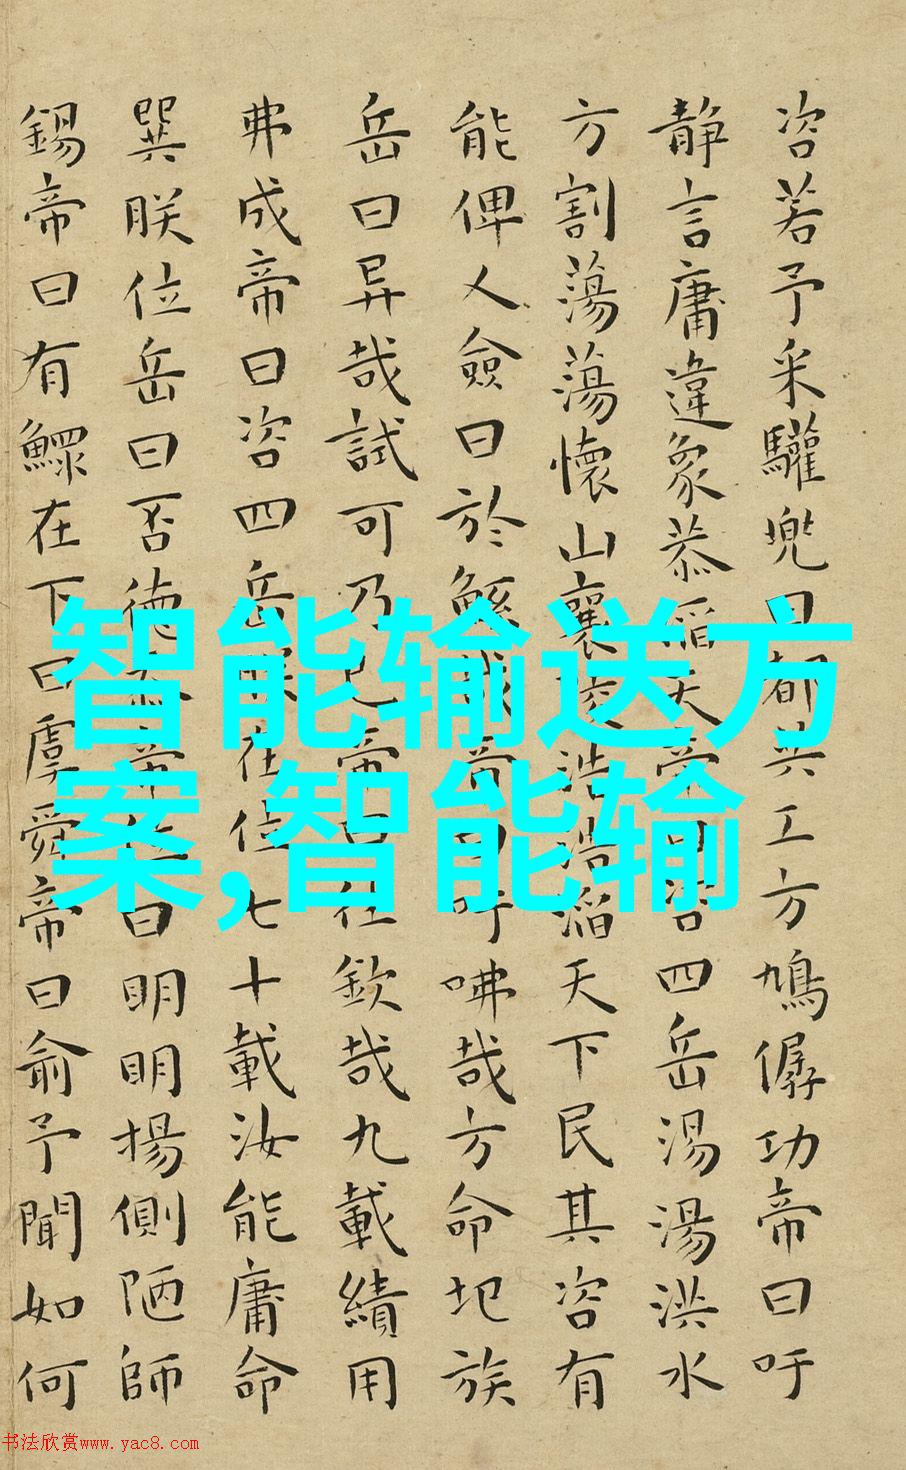 咨若予采驩兜曰都共工方鳩僝功帝曰吁
静言庸違象恭滔天帝曰咨四岳湯湯洪水
方割蕩蕩懷山襄陵浩浩滔天下民其咨有
能俾人僉曰於鯀哉帝曰吁咈哉方命圮族
岳曰异哉試可乃已帝曰往欽哉九載績用
弗成帝曰咨四岳朕在位七十載汝能庸命
巽朕位岳曰否德忝帝位曰明明揚側陋師
錫帝曰有鰥在下曰虞舜帝曰俞予聞如何
智能输送方
案,智能输
书法欣赏www.yac8.com